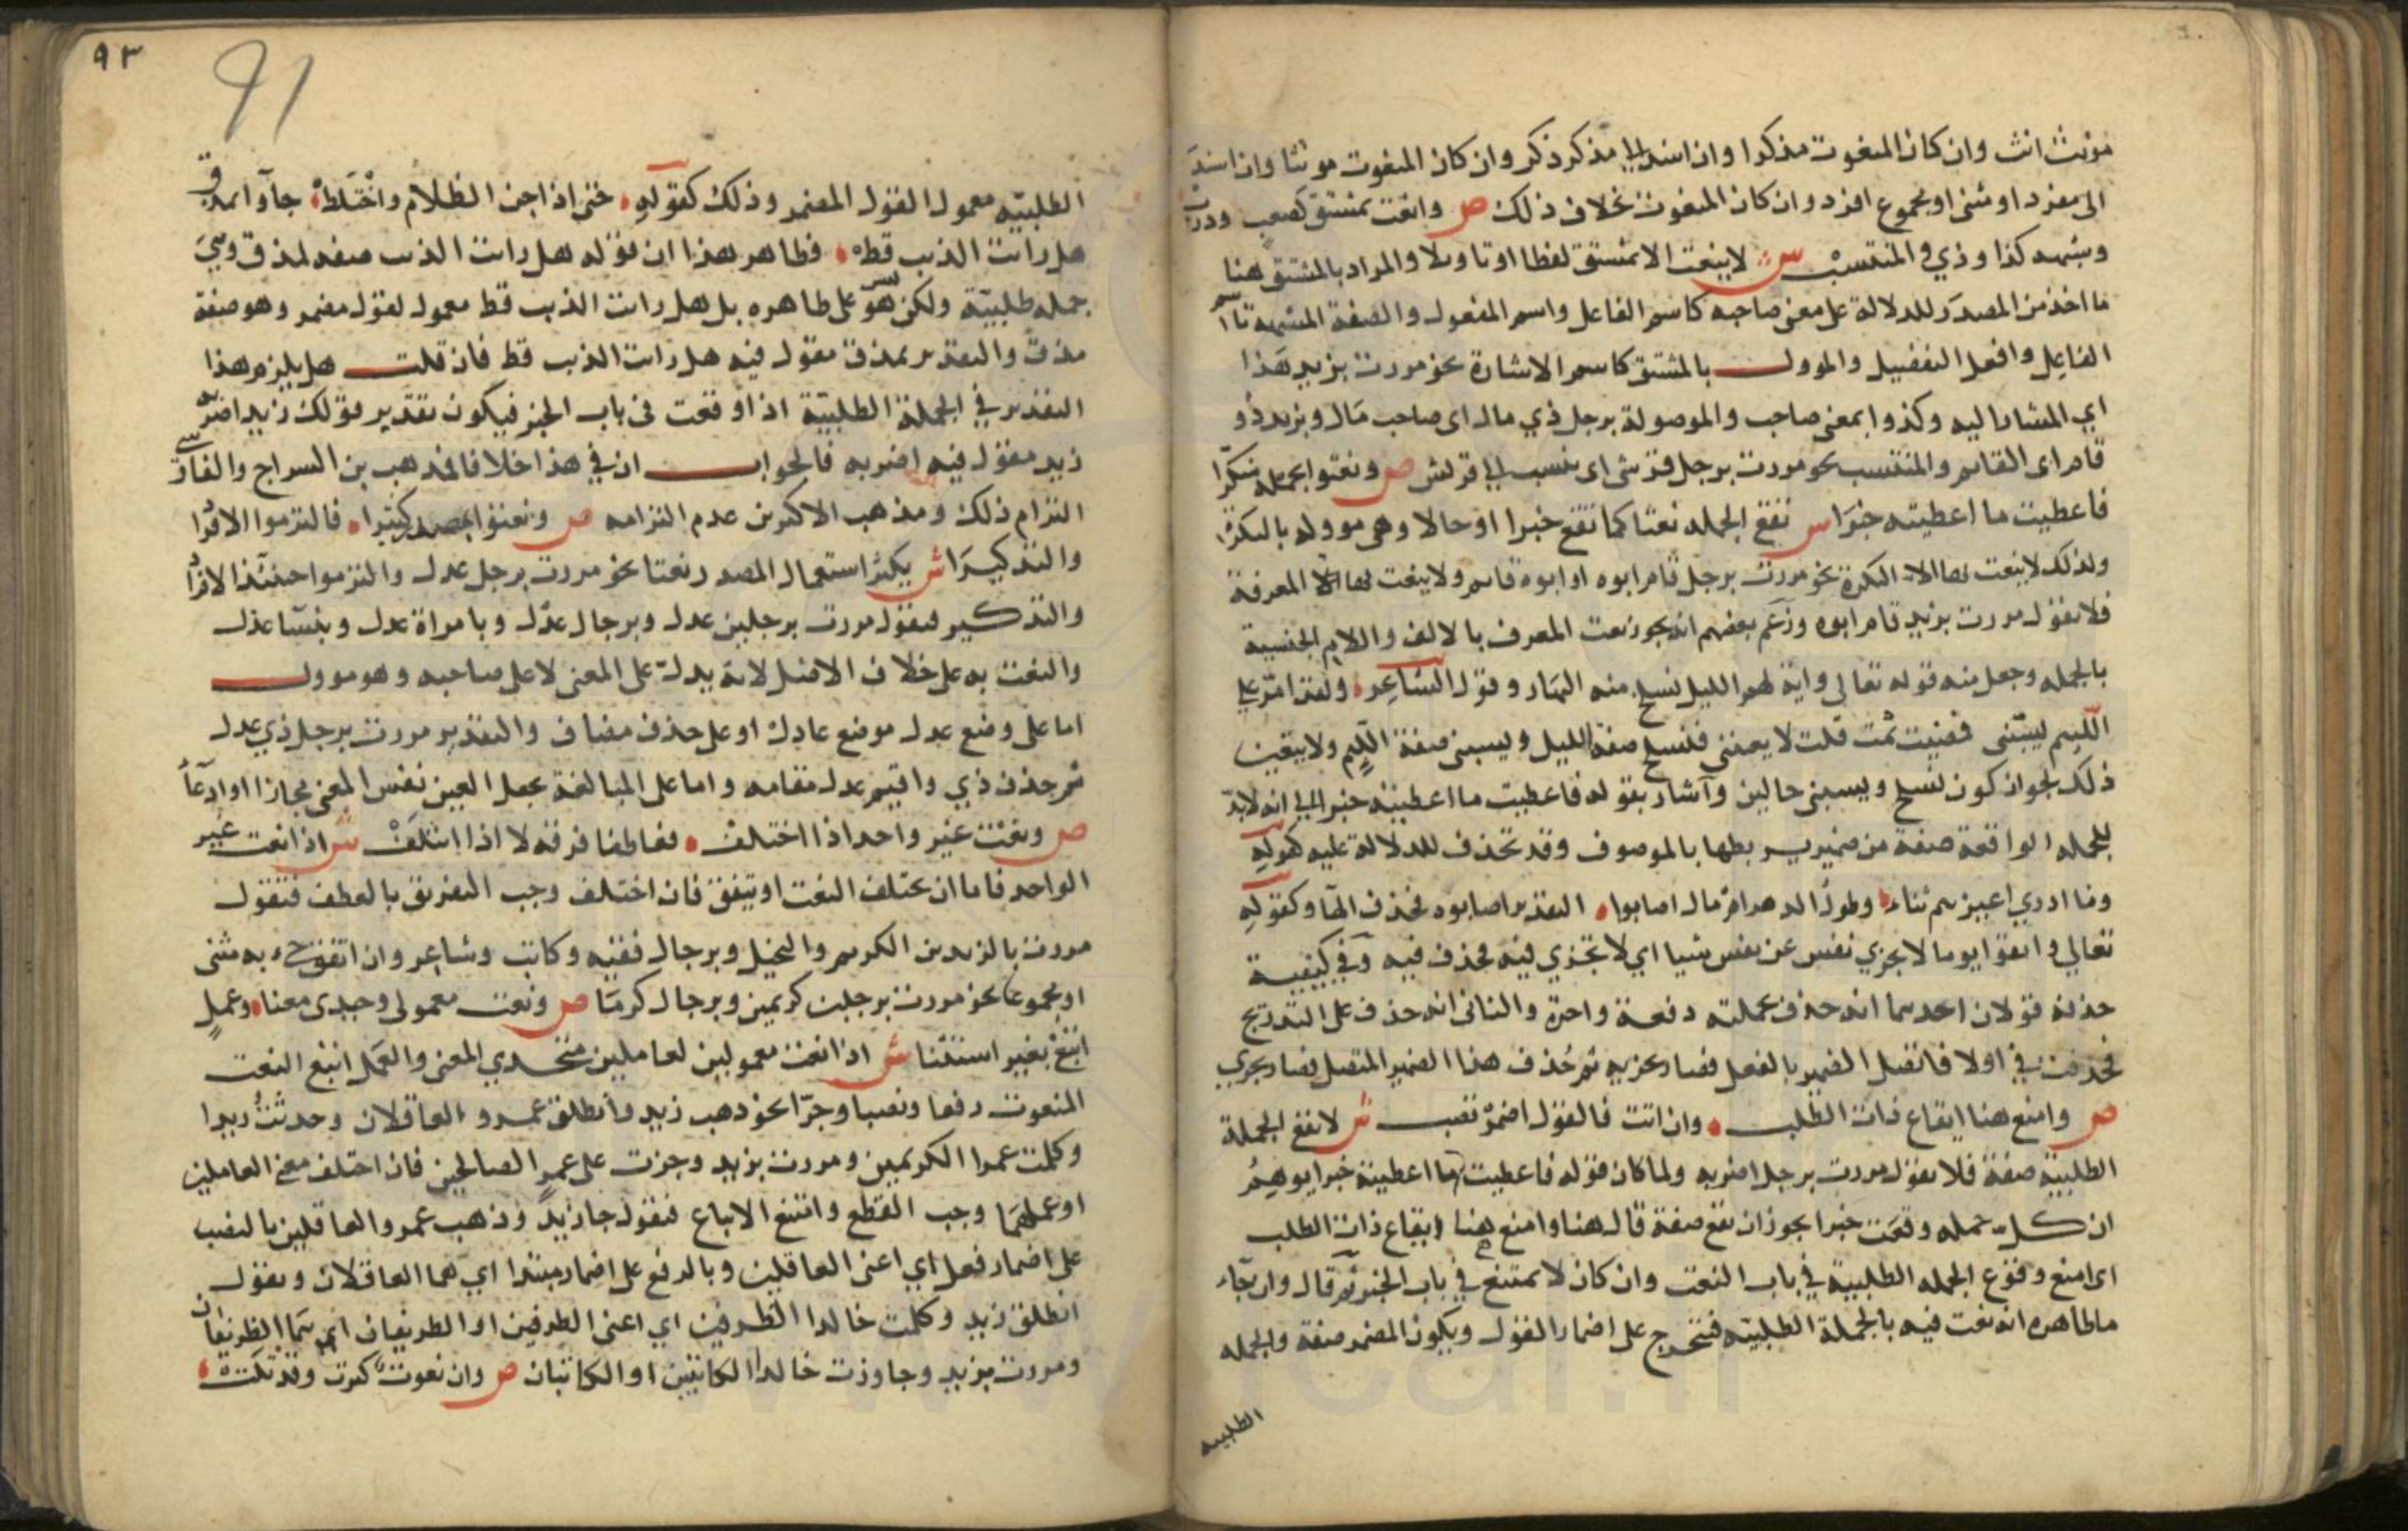 مؤنث انث وان كان المنعوت مذكرا وان اسند الى مذكر ذكر وان كان المنعوت مونثا وان اسند
الى مفرد او مثنى او مجموع افرد وان كان المنعوت بخلاف ذلك ص وانعت بمشتق كصعب وذرب
وشبهه كذا وذي والمنتسب ش لا ينعت الا بمشتق لفظا او تاويلا والمراد بالمشتق هنا
ما اخذ من المصدر للدلالة على معنى صاحبه كاسم الفاعل واسم المفعول والصفة المشبهة باسم
الفاعل وافعل التفضيل والموول بالمشتق كاسم الاشارة نحو مررت بزيد هذا
اي المشار اليه وكذوا بمعنى صاحب والموصولة برجل ذي مال اى صاحب مال وبزيد ذو
قام اى القائم والمنتسب نحو مررت برجل قرشى اى ينسب الى قريش ص ونعتوا بجملة منكرا
فاعطيت ما اعطيته خبرا ش تقع الجمله نعتا كما تقع خبرا او حالا وهي موولة بالنكرة
ولذلك لا ينعت بها الا النكرة نحو مررت برجل قام ابوه او ابوه قايم ولا ينعت بها المعرفة
فلا تقول مررت بزيد قام ابوه وزعم بعضهم انه يجوز نعت المعرف بالالف واللام الجنسية
بالجمله وجعل منه قوله تعالى واية لهم الليل نسلخ منه النهار وقول الشاعر ولقد امر على
اللئيم يسبنى فمضيت ثمت قلت لا يعنني فنسلخ صفة الليل ويسبني صفة اللئيم ولا يتعين
ذلك لجواز كون نسلخ ويسبني حالين واشار بقوله فاعطيت ما اعطيته خبرا الى انه لابد
للجمله الواقعة صفة من ضمير يربطها بالموصوف وقد تحذف للدلالة عليه كقوله
وما ادري اغيرهم تناء وطول الدهر ام مال اصابوا التقدير اصابوه فحذف الها وكقوله
تعالى واتقوا يوما لا تجزي نفس عن نفس شيا اي لا تجزي فيه فحذف فيه وفي كيفية
حذفه قولان احدهما انه حذف بجملته دفعة واحدة والثاني انه حذف على التدريج
فحذفت في اولا فاتصل الضمير بالفعل فصار تجزيه ثم حذف هذا الضمير المتصل فصار تجزي
ص وامنع هنا ايقاع ذات الطلب وان اتت فالقول اضمر تصب ش لا تقع الجملة
الطلبية صفة فلا تقول مررت برجل اضربه ولما كان قوله فاعطيت ما اعطيته خبرا يوهم
ان كل جمله وقعت خبرا يجوز ان تقع صفة قال هنا وامنع هنا ايقاع ذات الطلب
اى امنع وقوع الجمله الطلبية في باب النعت وان كان لا يمتنع في باب الخبر ثم قال وان جاء
ما ظاهره انه نعت فيه بالجملة الطلبية فتخرج على اضمار القول ويكون المضمر صفة والجمله
الطلبيه
٩٣
91
الطلبيه معمول القول المضمر وذلك كقوله حتى اذا جن الظلام واختلط جاؤا بمذق
هل رايت الذيب قط فظاهر هذا ان قوله هل رايت الذيب صفه لمذق وهي
جمله طلبية ولكن ليس هو على ظاهره بل هل رايت الذيب قط معمول لقول مضمر وهو صفة
مذق والتقدير بمذق مقول فيه هل رايت الذيب قط فان قلت هل يلزم هذا
التقدير في الجملة الطلبية اذا وقعت في باب الخبر فيكون تقدير قولك زيد اضربه
زيد مقول فيه اضربه فالجواب ان في هذا خلافا فمذهب بن السراج والفارسي
التزام ذلك ومذهب الاكثرين عدم التزامه ص ونعتوا بمصدر كثيرا فالتزموا الافرادا
والتذكيرا ش يكثر استعمال المصدر نعتا نحو مررت برجل عدل والتزموا حينئذ الافراد
والتذكير فتقول مررت برجلين عدل وبرجال عدل وبامراة عدل وبنسا عدل
والنعت به على خلاف الاصل لانه يدل على المعنى لا على صاحبه وهو موول
اما على وضع عدل موضع عادل او على حذف مضاف والتقدير مررت برجل ذي عدل
ثم حذف ذي واقيم عدل مقامه واما على المبالغة بجعل العين نفس المعنى مجازا او ادعآء
ص ونعت غير واحد اذا اختلف فعاطفا فرقه لا اذا ائتلف ش اذا نعت غير
الواحد فاما ان يختلف النعت او يتفق فان اختلف وجب التفريق بالعطف فتقول
مررت بالزيدين الكريم والبخيل وبرجال فقيه وكاتب وشاعر وان اتفق جيء به مثنى
او مجموعا نحو مررت برجلين كريمين وبرجال كرما ص ونعت معمولى وحيدى معنا وعمل
اتبع بغير استثنا ش اذا نعت معمولين لعاملين متحدي المعنى والعمل اتبع النعت
المنعوت رفعا ونصبا وجرا نحو ذهب زيد وانطلق عمرو العاقلان وحدثت زيدا
وكلمت عمرا الكريمين ومررت بزيد وجزت على عمرو الصالحين فان اختلف معنى العاملين
او عملهما وجب القطع وامتنع الاتباع فتقول جا زيد وذهب عمرو العاقلين بالنصب
على اضمار فعل اي اعني العاقلين وبالرفع على اضمار مبتدا اي هما العاقلان وتقول
انطلق زيد وكلمت خالدا الظريفين اي اعني الظريفين او الظريفان اي هما الظريفان
ومررت بزيد وجاوزت خالدا الكاتبين او الكاتبان ص وان نعوت كثرت وقد تلت